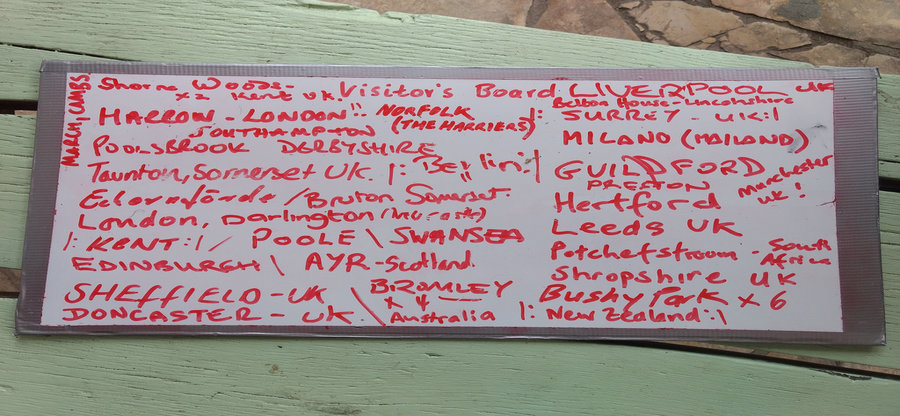 MARCH, CAMBS
Shorne Woods - Visitor's Board LIVERPOOL UK
x2 Kent UK! Belton House - Lincolnshire
- HARROW - LONDON!! NORFOLK |: SURREY - UK:|
SOUTHAMPTON (THE HARRIERS) MILANO (MAILAND)
POOLSBROOK DERBYSHIRE
Taunton, Somerset UK. |: Berlin:| GUILDFORD
PRESTON Manchester
UK!
Eckernförde / Bruton Somerset. Hertford
London, Darlington Leeds UK
|: KENT:| / POOLE \ SWANSEA Potchefstroom - South
Africa
EDINBURGH \ AYR - Scotland Shropshire UK
SHEFFIELD - UK \ BROMLEY Bushy Park x 6
x 4
DONCASTER - UK. \ Australia |: New Zealand:|